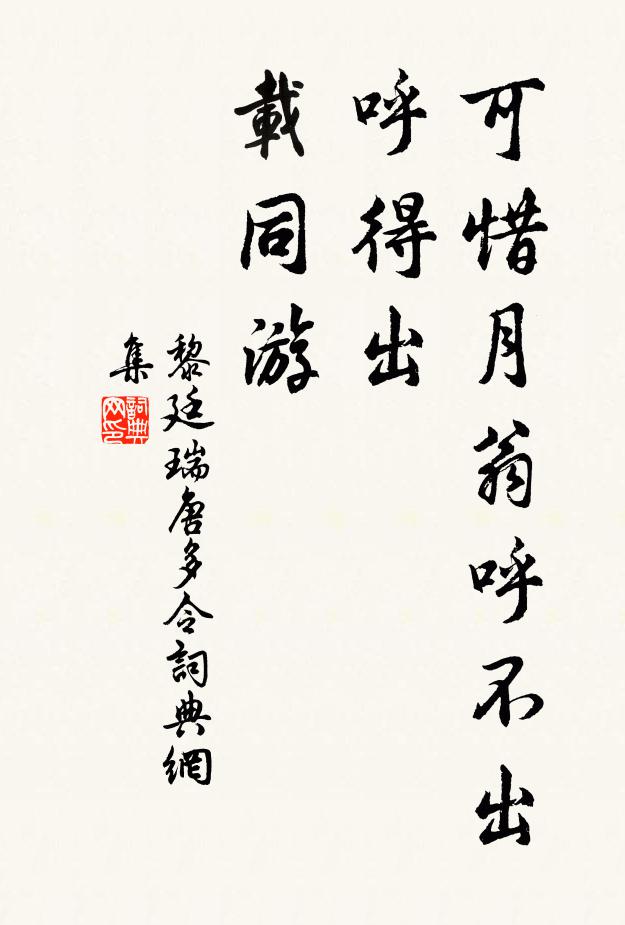 可惜月翁呼不出
呼得出
載同游
黎廷瑞唐多令詞典網
集
詞典
网印